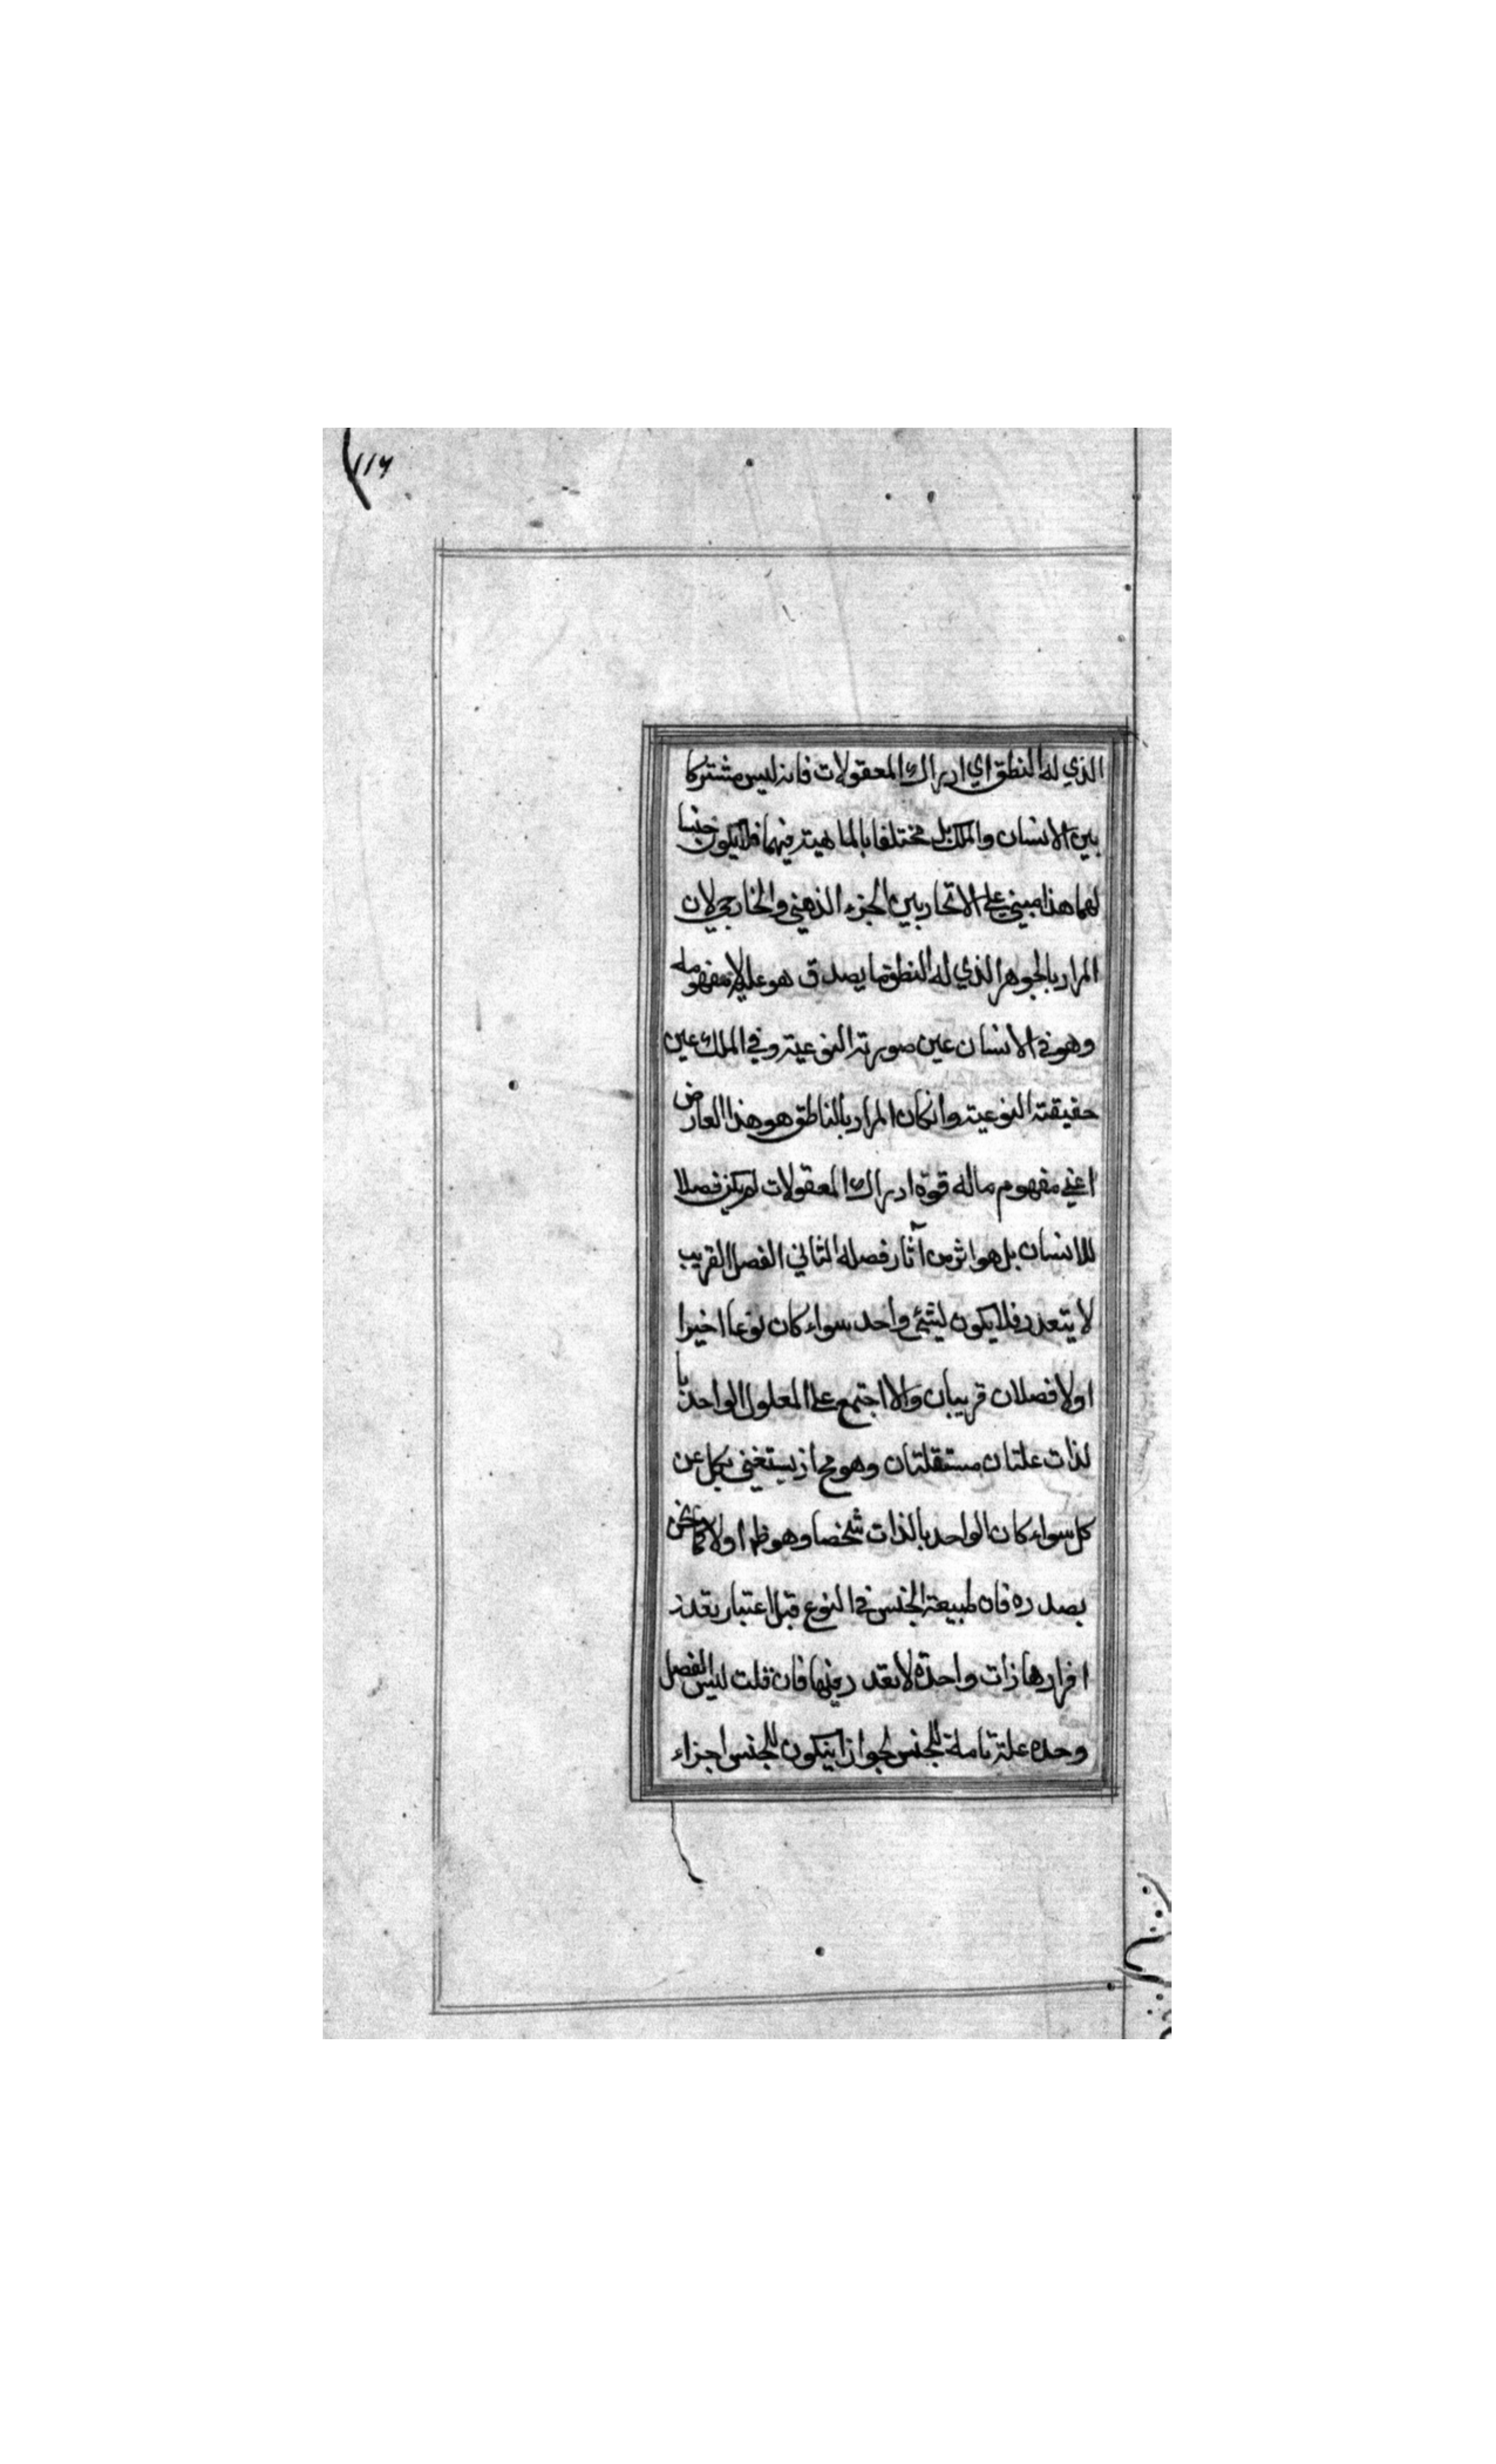 ١١٦
الذي له النطق اي ادراك المعقولات فانه ليس مشتركا
بين الانسان والملك بل مختلفا بالماهية فيهما فلايكون جنسا
لهما هذا مبني على الاتحاد بين الجزء الذهني والخارجي لان
المراد بالجوهر الذي له النطق ما يصدق هو عليه لا مفهومه
وهو في الانسان عين صورته النوعية وفي الملك عين
حقيقته النوعية وانكان المراد بالناطق هو هذا العارض
اعني مفهوم ماله قوة ادراك المعقولات لم يكن فصلا
للانسان بل هو اثر من آثار فصله الثاني الفصل القريب
لا يتعدد فلايكون لشئ واحد سواء كان نوعا اخيرا
اولا فصلان قريبان والا اجتمع على المعلول الواحد با
لذات علتان مستقلتان وهو مح اذ يستغني بكل عن
كل سواء كان الواحد بالذات شخصا وهو ظ اولا كما نحن
بصدده فان طبيعة الجنس في النوع قبل اعتبار تعدد
افرادها ذات واحدة لاتعدد فيها فان قلت ليس الفصل
وحده علة تامة للجنس لجواز اينكون للجنس اجزاء